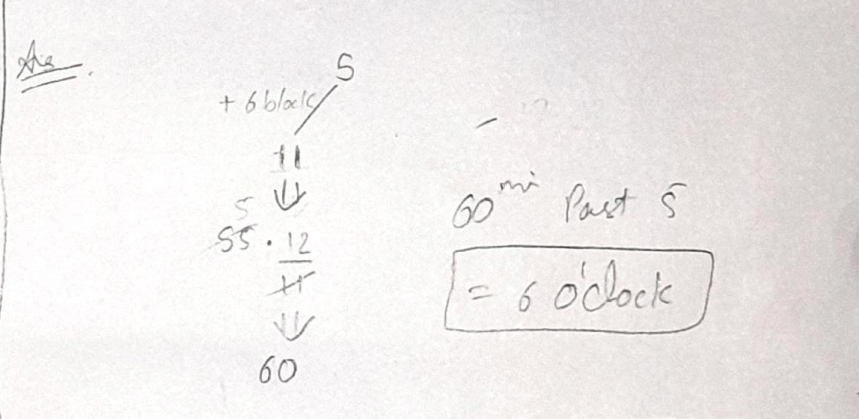 Ans.
5
+ 6 block
11
⇓
5
55 . 12
11
⇓
60
60 min Past 5
= 6 o'clock